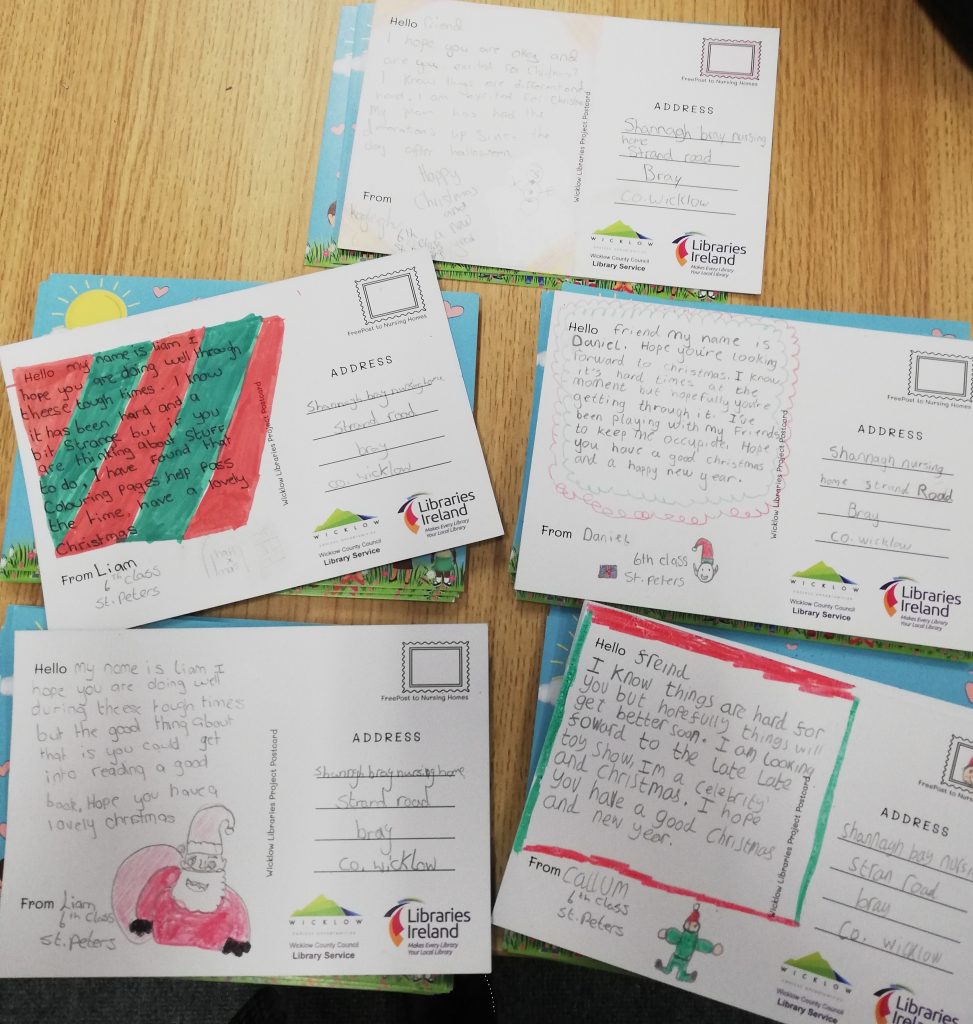 Hello friend
I hope you are okay and
are you excited for
I know things are different
My mam has had the
up since the
day after halloween
Happy
Christmas
and
a new
From
6th
Wicklow Libraries Project Postcard
FreePost to Nursing Homes
ADDRESS
Shannagh bray nursing
home
Strand road
Bray
co. wicklow
WICKLOW
Wicklow County Council
Library Service
Libraries
Ireland
Makes Every Library
Your Local Library
Hello my name is liam I
hope you are doing well through
theese tough times. I know
it has been hard and a
bit strange but if you
are thinking about stuff
to do, I have found that
Colouring pages help pass
the time, have a lovely
Christmas
From Liam
6th class
st. Peters
Wicklow Libraries Project Postcard
FreePost to Nursing Homes
ADDRESS
Shannagh bray nursing home
Strand road
bray
co. wicklow
WICKLOW
Wicklow County Council
Library Service
Libraries
Ireland
Makes Every Library
Your Local Library
Hello friend my name is
Daniel. Hope you're looking
forward to christmas. I know
it's hard times at the
moment but hopefully you're
getting through it. I've
been playing with my Friends
to keep me occupide. Hope
you have a good christmas
and a happy new year.
From Daniel
6th class
St. Peters
Wicklow Libraries Project Postcard
FreePost to Nursing Homes
ADDRESS
Shannagh nursing
home strand Road
Bray
co. wicklow
WICKLOW
Wicklow County Council
Library Service
Libraries
Ireland
Makes Every Library
Your Local Library
Hello My name is liam I
hope you are doing well
during theese tough times
but the good thing about
that is you could get
into reading a good
book, Hope you have a
lovely christmas
From Liam
6th class
st. Peters
Wicklow Libraries Project Postcard
FreePost to Nursing Homes
ADDRESS
shannagh bray nursing home
Strand road
bray
co. wicklow
WICKLOW
Wicklow County Council
Library Service
Libraries
Ireland
Makes Every Library
Your Local Library
Hello freind
I know things are hard for
you but hopefully things will
get better soon. I am looking
foward to the Late Late
toy show, I'm a celebrity
and Christmas. I hope
you have a good Christmas
and new year.
From CALLUM
6th class
St. Peters
Wicklow Libraries Project Postcard
FreePost to Nursing
ADDRESS
shannagh bay
stran road
bray
co. wicklow
WICKLOW
Wicklow County Council
Library Service
Libraries
Ireland